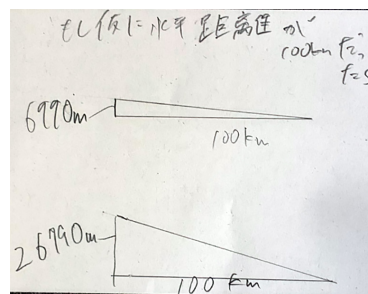 もし仮に水平距離が
100km だっ
たら
6990m
100km
26790m
100 km